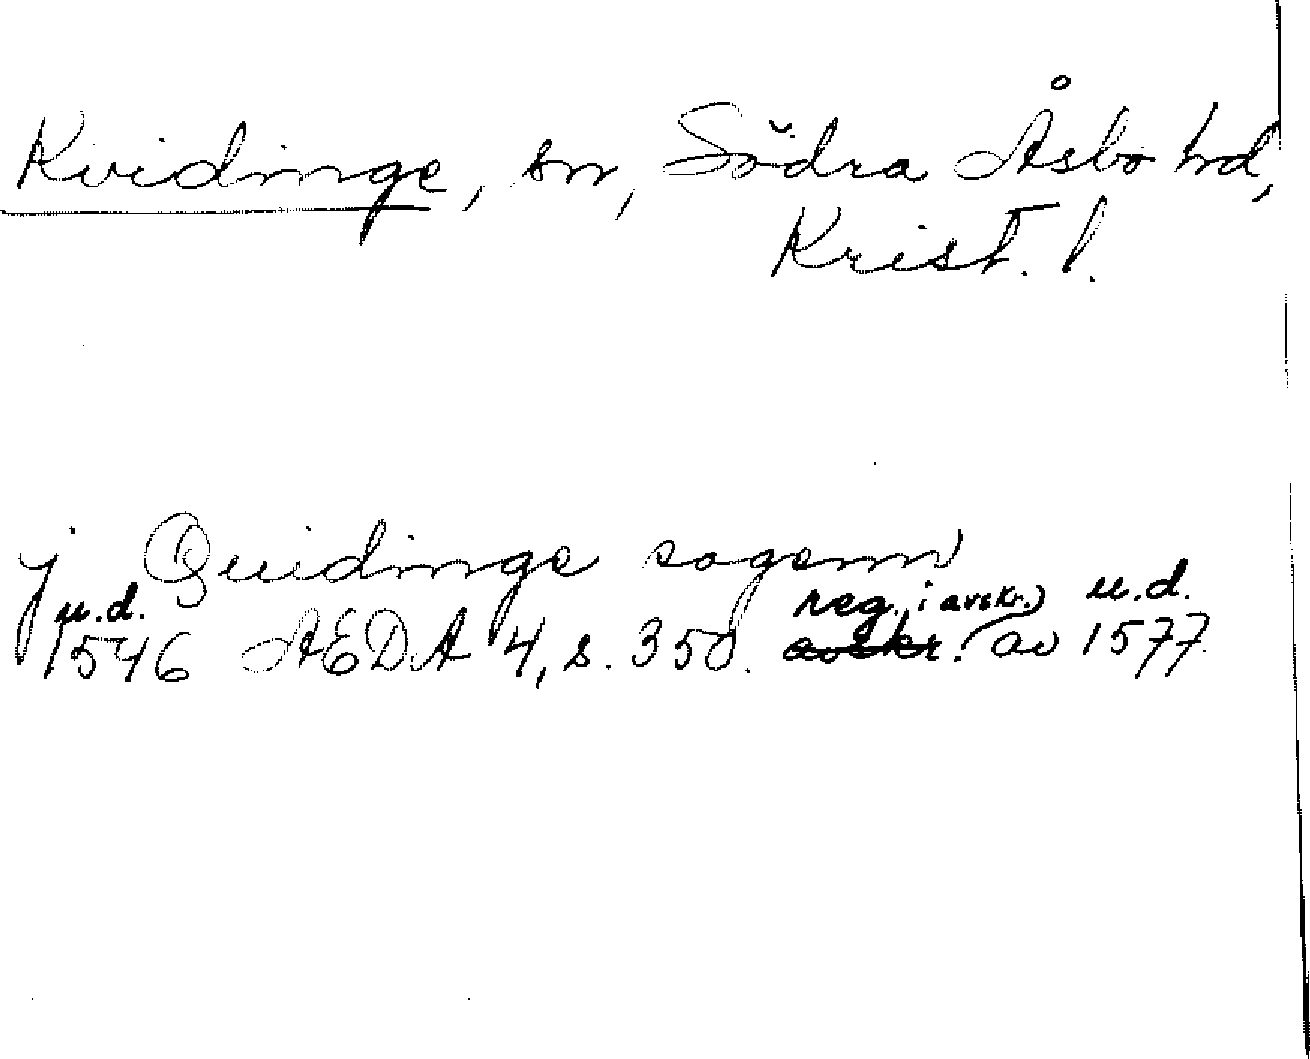 Kvidinge, sn, Södra Åsbo hd,
Krist. l.
j Quidinge sogenn
u.d. reg. i avskr.) u.d.
1546 AEDA 4, s. 350. avskr. (av 1577.